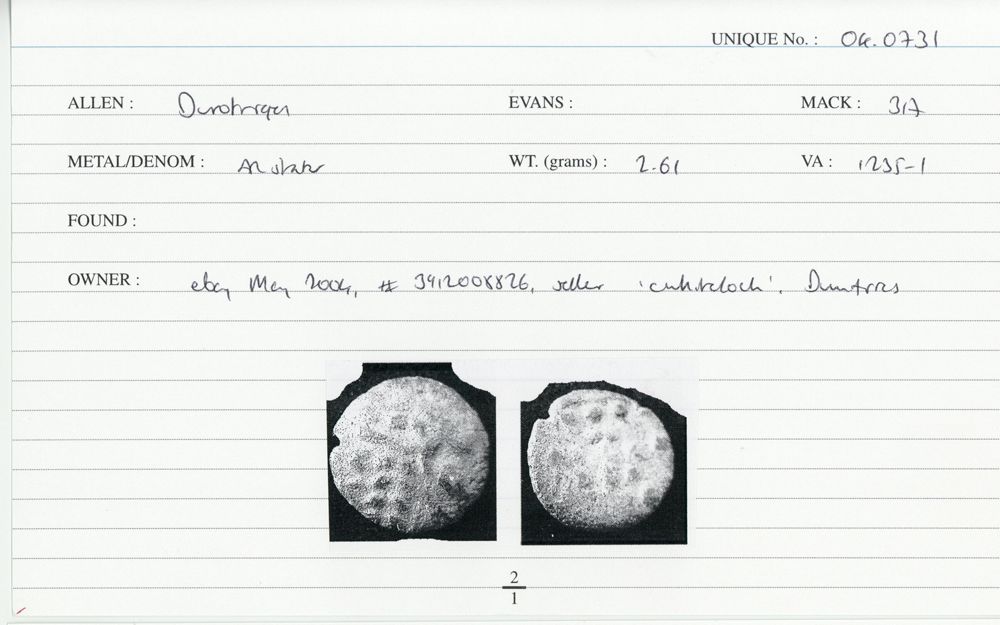 UNIQUE No. : 04.0731
ALLEN : Durotrigan EVANS : MACK : 317
METAL/DENOM : AR stater WT. (grams) : 2.61 VA : 1235-1
FOUND :
OWNER : ebay May 2004, # 3912008826, seller
2
1